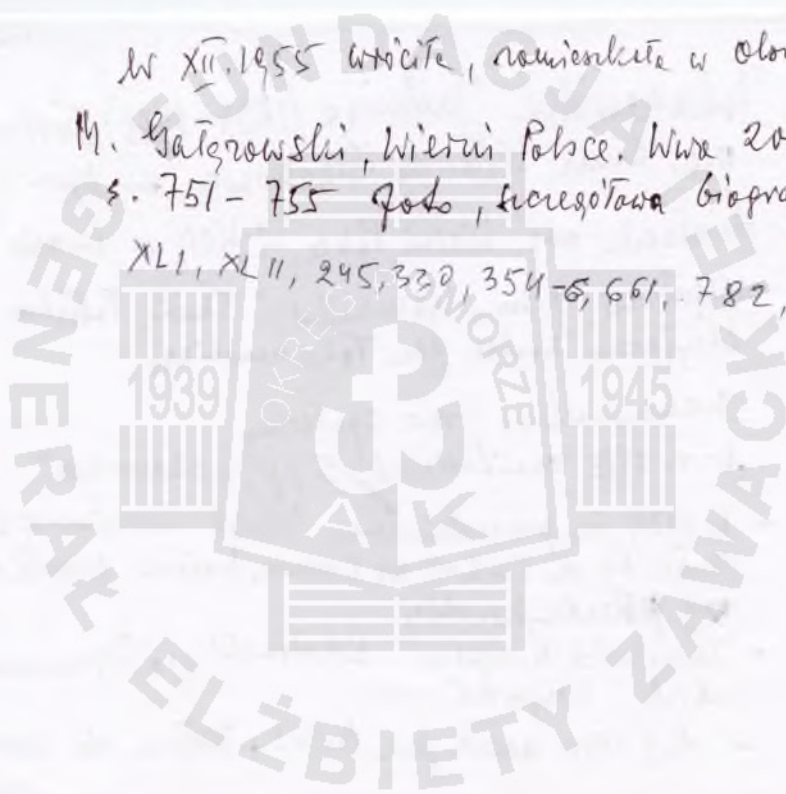 W XII.1955 wróciła, zamieszkała w
M. Gałęzowski, Wierni Polsce. Wwa 20
s. 751 - 755 foto, szczegółowa biogra
XLI, XLII, 245, 330, 354-6, 661, 782,
FUNDACJA
GENERAŁ ELŻBIETY ZAWACKIEJ
OKRĘG POMORZE
1939
1945
AK